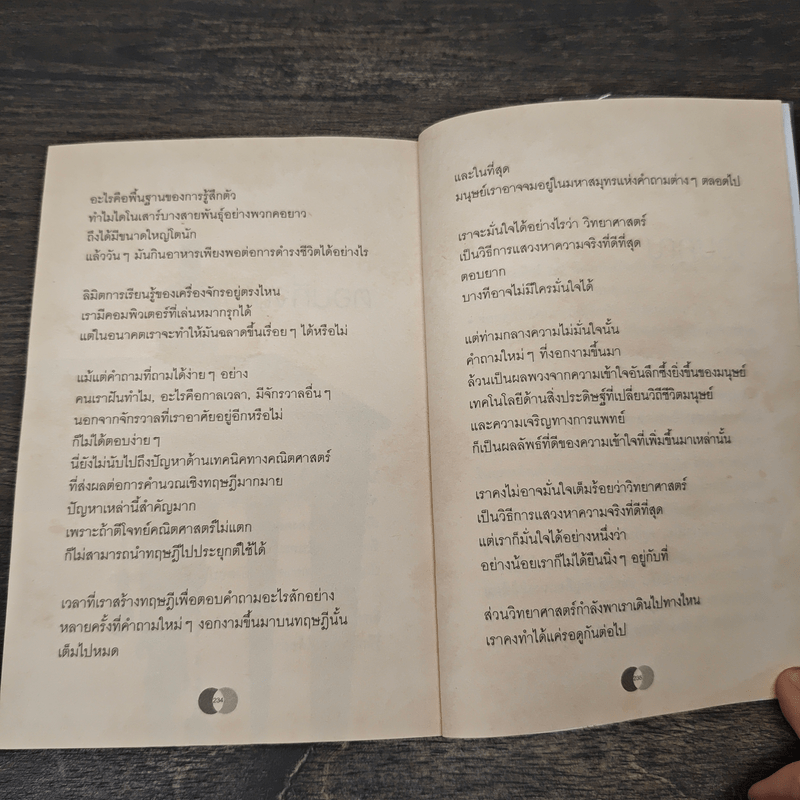 อะไรคือพื้นฐานของการรู้สึกตัว
ทำไมไดโนเสาร์บางสายพันธุ์อย่างพวกคอยาว
ถึงได้มีขนาดใหญ่โตนัก
แล้ววันๆ มันกินอาหารเพียงพอต่อการดำรงชีวิตได้อย่างไร
ลิมิตการเรียนรู้ของเครื่องจักรอยู่ตรงไหน
เรามีคอมพิวเตอร์ที่เล่นหมากรุกได้
แต่ในอนาคตเราจะทำให้มันฉลาดขึ้นเรื่อยๆ ได้หรือไม่
แม้แต่คำถามที่ถามได้ง่ายๆ อย่าง
คนเราฝันทำไม, อะไรคือกาลเวลา, มีจักรวาลอื่นๆ
นอกจากจักรวาลที่เราอาศัยอยู่อีกหรือไม่
ก็ไม่ได้ตอบง่ายๆ
นี่ยังไม่นับไปถึงปัญหาด้านเทคนิคทางคณิตศาสตร์
ที่ส่งผลต่อการคำนวณเชิงทฤษฎีมากมาย
ปัญหาเหล่านี้สำคัญมาก
เพราะถ้าตีโจทย์คณิตศาสตร์ไม่แตก
ก็ไม่สามารถนำทฤษฎีไปประยุกต์ใช้ได้
เวลาที่เราสร้างทฤษฎีเพื่อตอบคำถามอะไรสักอย่าง
หลายครั้งที่คำถามใหม่ๆ งอกงามขึ้นมาบนทฤษฎีนั้น
เต็มไปหมด
234
และในที่สุด
มนุษย์เราอาจจมอยู่ในมหาสมุทรแห่งคำถามต่างๆ ตลอดไป
เราจะมั่นใจได้อย่างไรว่า วิทยาศาสตร์
เป็นวิธีการแสวงหาความจริงที่ดีที่สุด
ตอบยาก
บางทีอาจไม่มีใครมั่นใจได้
แต่ท่ามกลางความไม่มั่นใจนั้น
คำถามใหม่ๆ ที่งอกงามขึ้นมา
ล้วนเป็นผลพวงจากความเข้าใจอันลึกซึ้งยิ่งขึ้นของมนุษย์
เทคโนโลยีด้านสิ่งประดิษฐ์ที่เปลี่ยนวิถีชีวิตมนุษย์
และความเจริญทางการแพทย์
ก็เป็นผลลัพธ์ที่ดีของความเข้าใจที่เพิ่มขึ้นมาเหล่านั้น
เราคงไม่อาจมั่นใจเต็มร้อยว่าวิทยาศาสตร์
เป็นวิธีการแสวงหาความจริงที่ดีที่สุด
แต่เราก็มั่นใจได้อย่างหนึ่งว่า
อย่างน้อยเราก็ไม่ได้ยืนนิ่งๆ อยู่กับที่
ส่วนวิทยาศาสตร์กำลังพาเราเดินไปทางไหน
เราคงทำได้แค่รอดูกันต่อไป